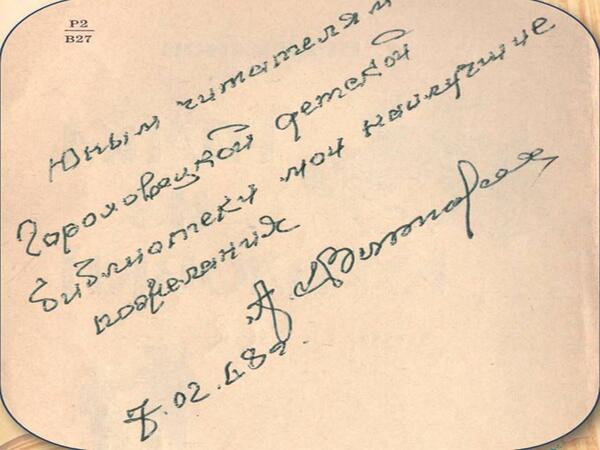 Р2
В27
Юным читателям
Гороховецкой детской
библиотеки мои наилучшие
пожелания
7.02.48г.